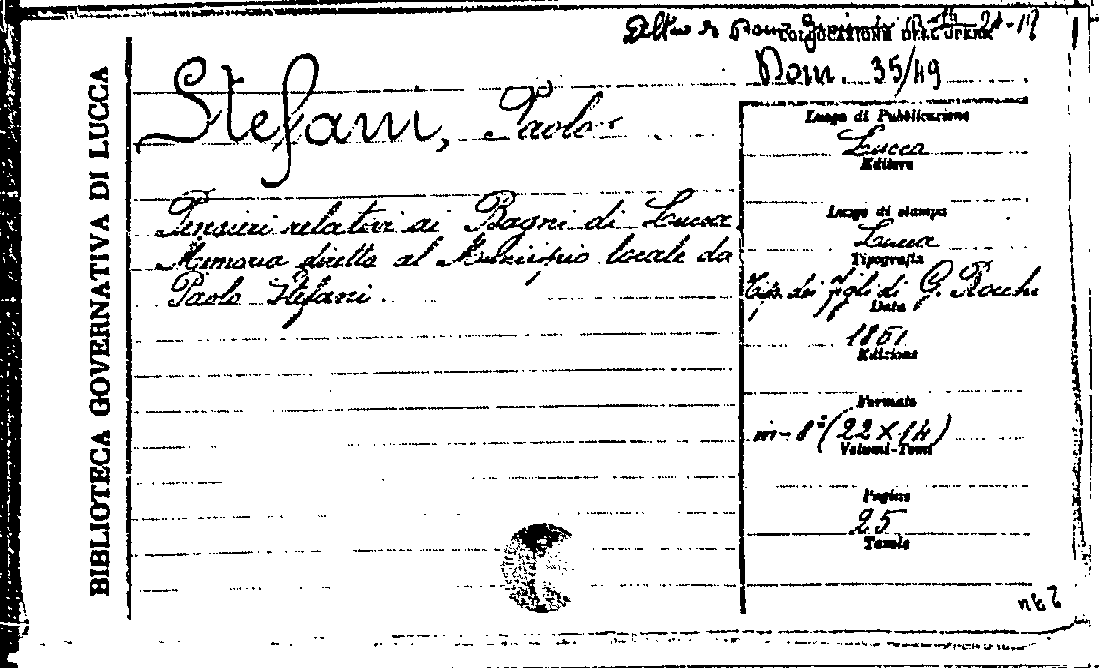 BIBLIOTECA GOVERNATIVA DI LUCCA
COLLOCAZIONE DELL'OPERA
Rom. 35/49
Stefani, Paolo
Pensieri relativi ai Bagni di Lucca
Memoria diretta al Municipio locale da
Paolo Stefani.
Luogo di Pubblicazione
Lucca
Editore
Luogo di stampa
Lucca
Tipografia
Tip. dei figli di G. Rocchi
Data
1851
Edizione
Formato
in-8° (22 X 14)
Volumi-Tomi
Pagine
25
Tavole